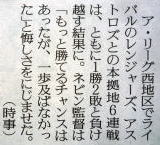 ア・リーグ西地区でライ
バルのレンジャーズ、アス
トロズとの本拠地6連戦
は、ともに1勝2敗と負け
越す結果に。ネビン監督は
「もっと勝てるチャンスは
あったが、一歩及ばなかっ
た」と悔しさをにじませた。
(時事)